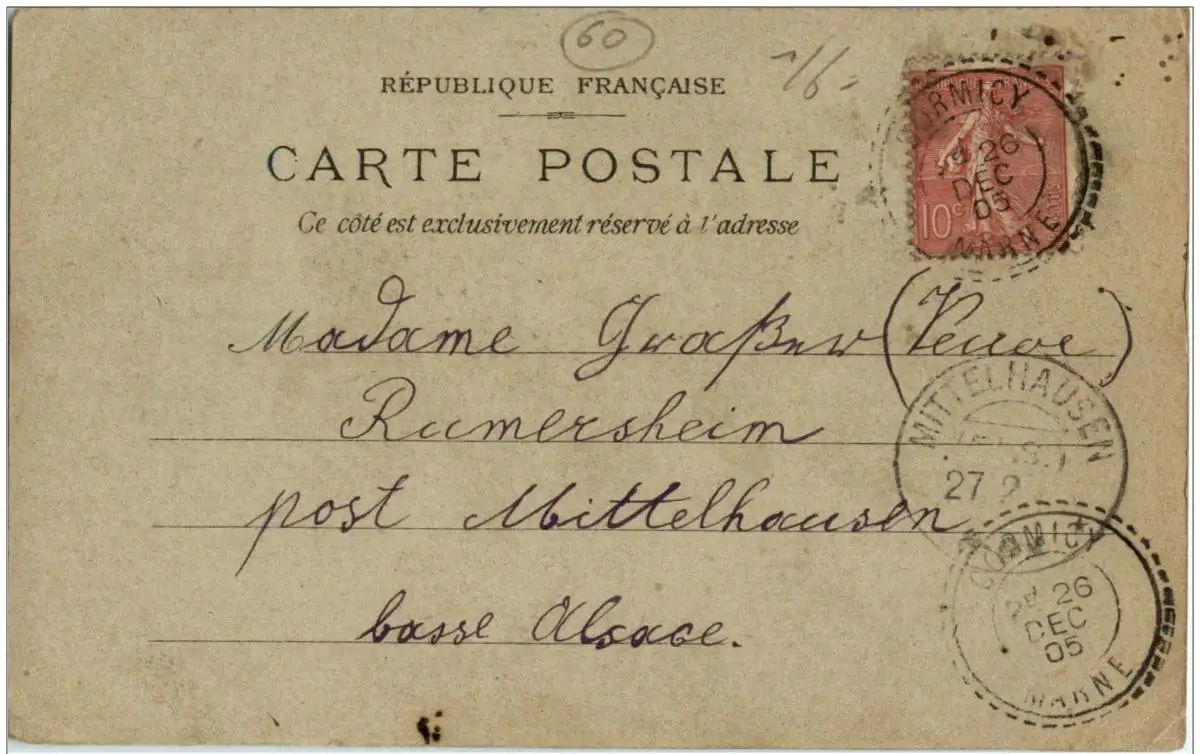 60
RÉPUBLIQUE FRANÇAISE
CARTE POSTALE
Ce côté est exclusivement réservé à l'adresse
CORMICY
26
DEC
05
MARNE
10c
POSTES
Madame Graßer (Veuve)
Rumersheim
post Mittelhausen
basse Alsace.
MITTELHAUSEN
27
CORMICY
2E 26
DEC
05
MARNE